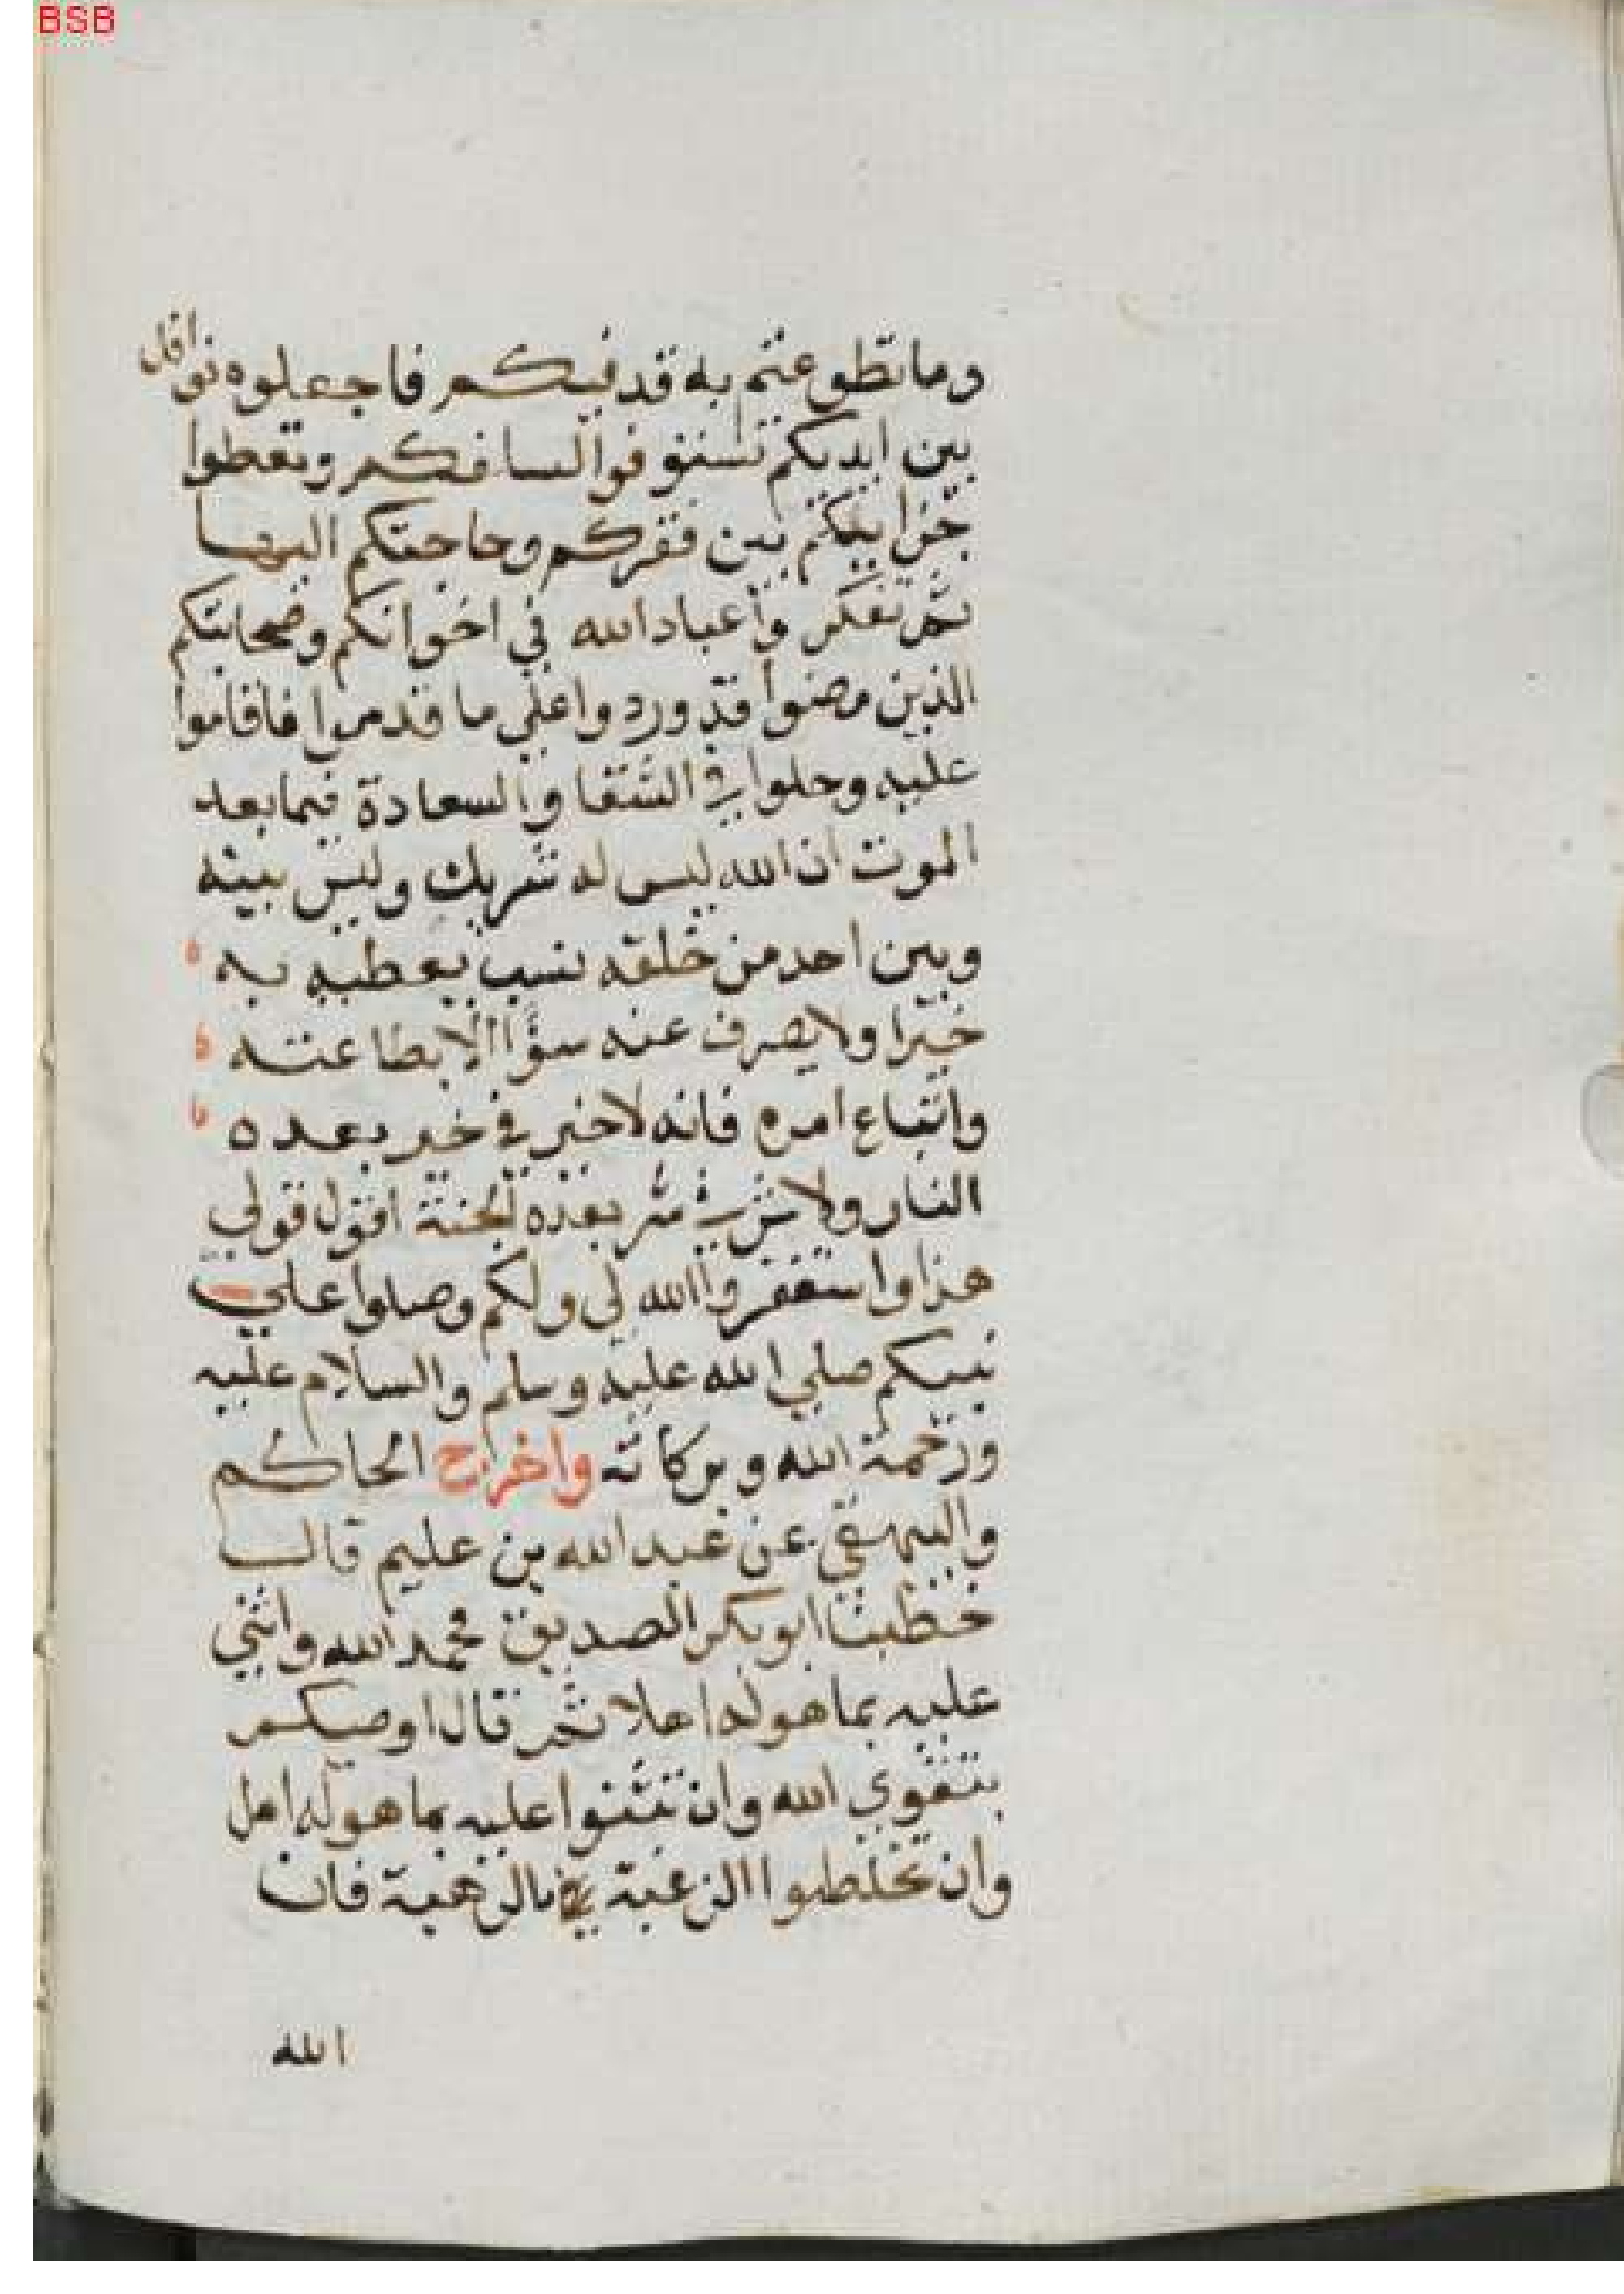 BSB
وما تطوعتم به قد فيكم فاجعلوه نوافل
بين ايديكم تستوفوا لسافكم وتعطوا
جزاييكم بين فقركم وحاجتكم اليها
ثم تفكروا عباد الله في اخوانكم وصحابتكم
الذين مضوا قد وردوا على ما قدموا فاقاموا
عليه وحلوا في الشقا والسعادة فيما بعد
الموت ان الله ليس له شريك وليس بينه
وبين احد من خلقه نسب يعطيه به
خيرا ولا يصرف عنه سؤا الا بطاعته
واتباع امره فانه لا خير في خير بعده
النار ولا شر في شر بعده الجنة اقول قولي
هذا واستغفروا الله لي ولكم وصلوا علي
نبيكم صلي الله عليه وسلم والسلام عليه
ورحمة الله وبركاته واخرج الحاكم
والبيهقي عن عبد الله بن عليم قال
خطبنا ابو بكر الصديق فحمد الله واثني
عليه بما هو له اهلا ثم قال اوصيكم
بتقوي الله وان تثنوا عليه بما هو له اهل
وان تخلطوا الرغبة بالرهبة فان
الله